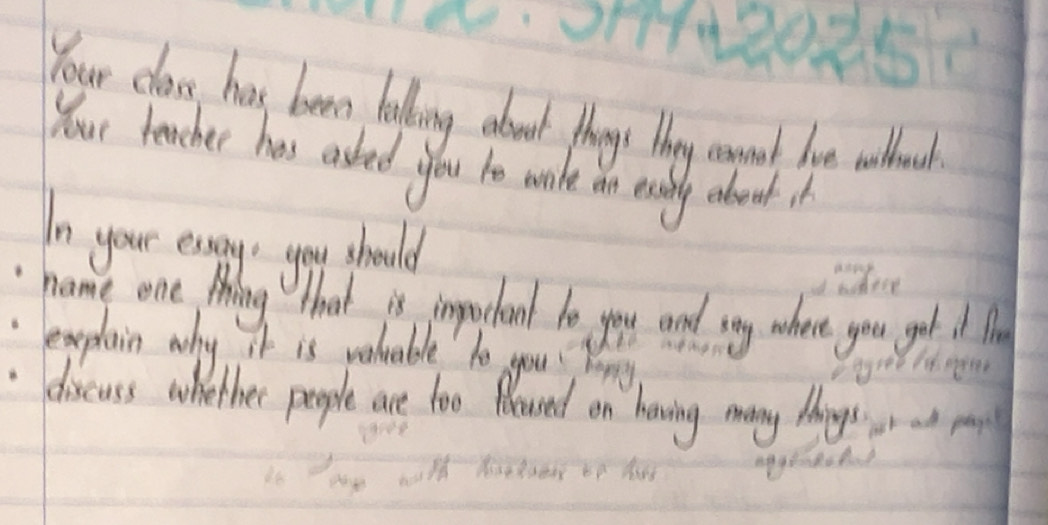 2025
Your class has been talking about things they cannot live without.
Your teacher has asked you to write an essay about it
In your essay, you should
where
• name one thing that is important to you and say where you got it from
• explain why it is valuable to you
happy
• discuss whether people are too focused on having many things.
agree
with